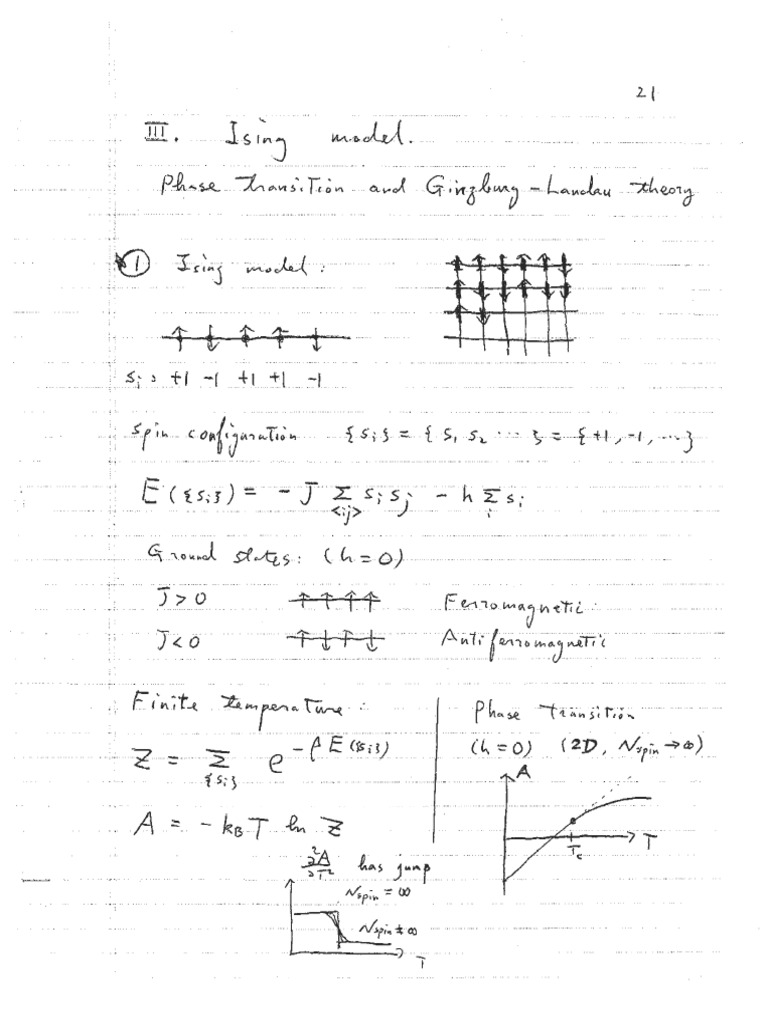 21
III. Ising model.
Phase transition and Ginzburg-Landau theory
① Ising model:
Si: +1 -1 +1 +1 -1
Spin configuration {Si} = {S1 S2 ...} = {+1, -1, ...}
E({Si}) = -J Σ<ij> Si Sj - h Σi Si
Ground states: (h=0)
J>0 Ferromagnetic.
J<0 Antiferromagnetic
Finite temperature:
Z = Σ{Si} e^{-βE({Si})}
A = -kBT ln Z
∂²A/∂T² has jump
Nspin = ∞
Nspin ≠ ∞
T
Phase Transition
(h=0) (2D, Nspin→∞)
A
T
Tc